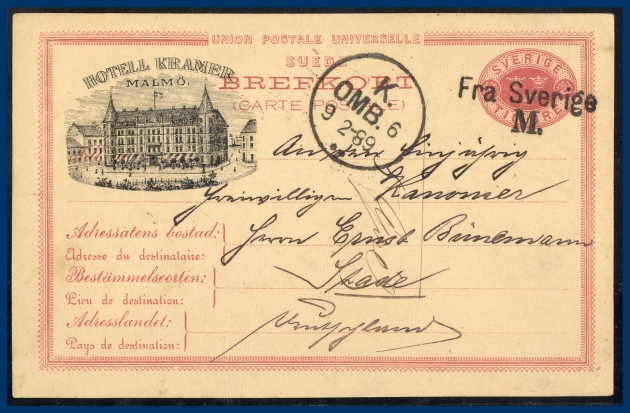 UNION POSTALE UNIVERSELLE
SUÈDE
HOTELL KRAMER
MALMÖ.
BREFKORT
(CARTE POSTALE)
SVERIGE
K.
OMB. 6
9 2-89
Fra Sverige
M.
An den Einjährig
Freiwilligen Kanonier
Herrn Ernst Bünemann
Stade
Deutschland
Adressatens bostad:
Adresse du destinataire:
Bestämmelseorten:
Lieu de destination:
Adresslandet:
Pays de destination: